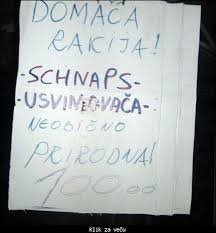 DOMAĆA
RAKIJA!
-SCHNAPS-
-USVINJOVAČA-
NEOBIČNO
PRIRODNA!
100.00
Klik za veću